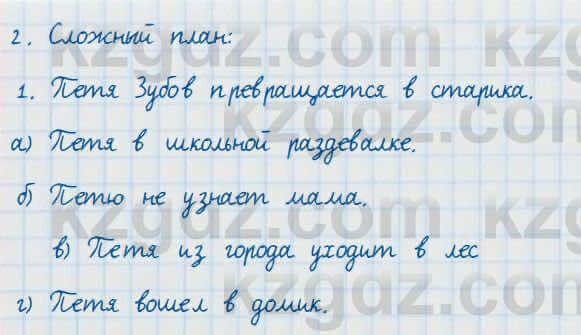 2. Сложный план:
1. Петя Зубов превращается в старика.
а) Петя в школьной раздевалке.
б) Петю не узнает мама.
в) Петя из города уходит в лес
г) Петя вошел в домик.
kzgdz.com